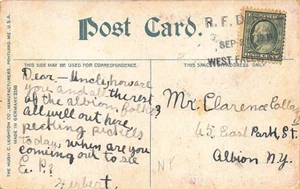 Post Card.
R. F. D.
SEP
WEST FA
THIS SIDE MAY BE USED FOR CORRESPONDENCE.
THE HUGH C. LEIGHTON CO., MANUFACTURERS, PORTLAND, ME., U.S.A.
MADE IN GERMANY
Dear Uncle how are
you and all the rest
of the albion folks
all well out here
picking pickles
today, when are you
coming out to see
G. P.?
Herbert
Mr. Clarence
45 East Park St.
Albion N.Y.
NY